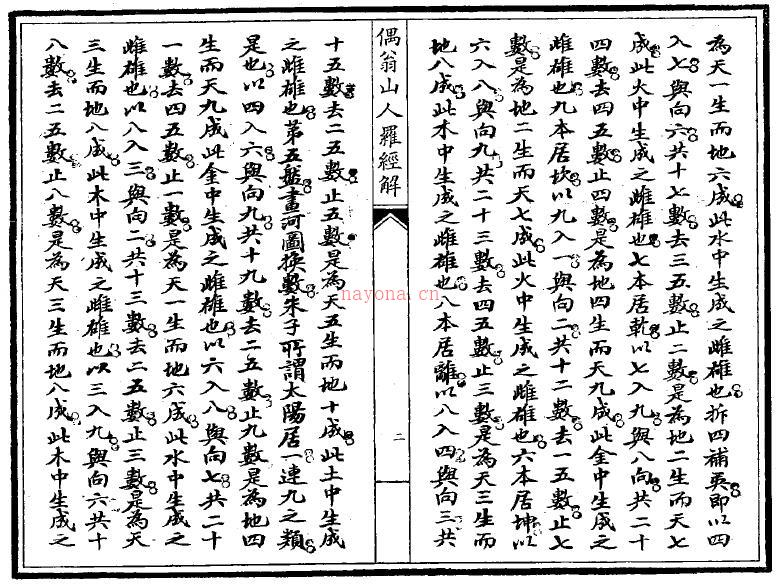 為天一生而地六成此水中生成之雌雄也拆四補奚即以四
入七與向六共十七數去三五數止二數是為地二生而天七
成此火中生成之雌雄也七本居乾以七入九與八向共二十
四數去四五數止四數是為地四生而天九成此金中生成之
雌雄也九本居坎以九入一與向二共十二數去一五數止七
數是為地二生而天七成此火中生成之雌雄也六本居坤以
六入八與向九共二十三數去四五數止三數是為天三生而
地八成此木中生成之雌雄也八本居離以八入四與向三共
偶翁山人羅經解
二
十五數去二五數止五數是為天五生而地十成此土中生成
之雌雄也第五盤畫河圖換數朱子所謂太陽居一連九之類
是也以四入六與向九共十九數去二五數止九數是為地四
生而天九成此金中生成之雌雄也以六入八與向七共二十
一數去四五數止一數是為天一生而地六成此水中生成之
雌雄也以八入三與向二共十三數去二五數止三數是為天
三生而地八成此木中生成之雌雄也以三入九與向六共十
八數去二五數止八數是為天三生而地八成此木中生成之
nayona.cn